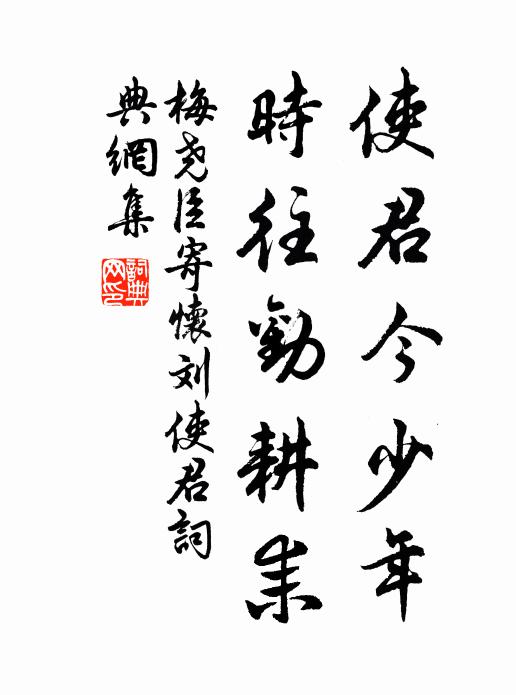 使君今少年
時往勸耕耒
梅尧臣寄懷刘使君詞
典網集
詞典
网印